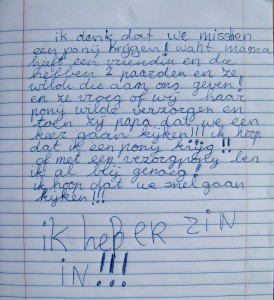 ik denk dat we misschien
een pony krijgen! want mama
heeft een vriendin en die
hebben 2 paarden en ze
wilde die aan ons geven!
en ze vroeg of wij haar
pony wilde verzorgen en
toen zij papa dat we een
keer gaan kijken!!! ik hoop
dat ik een pony krijg!!
of met een verzorgpony ben
ik al blij genoeg!
ik hoop dat we snel gaan
kijken!!!
ik heb ER ZIN
IN!!!